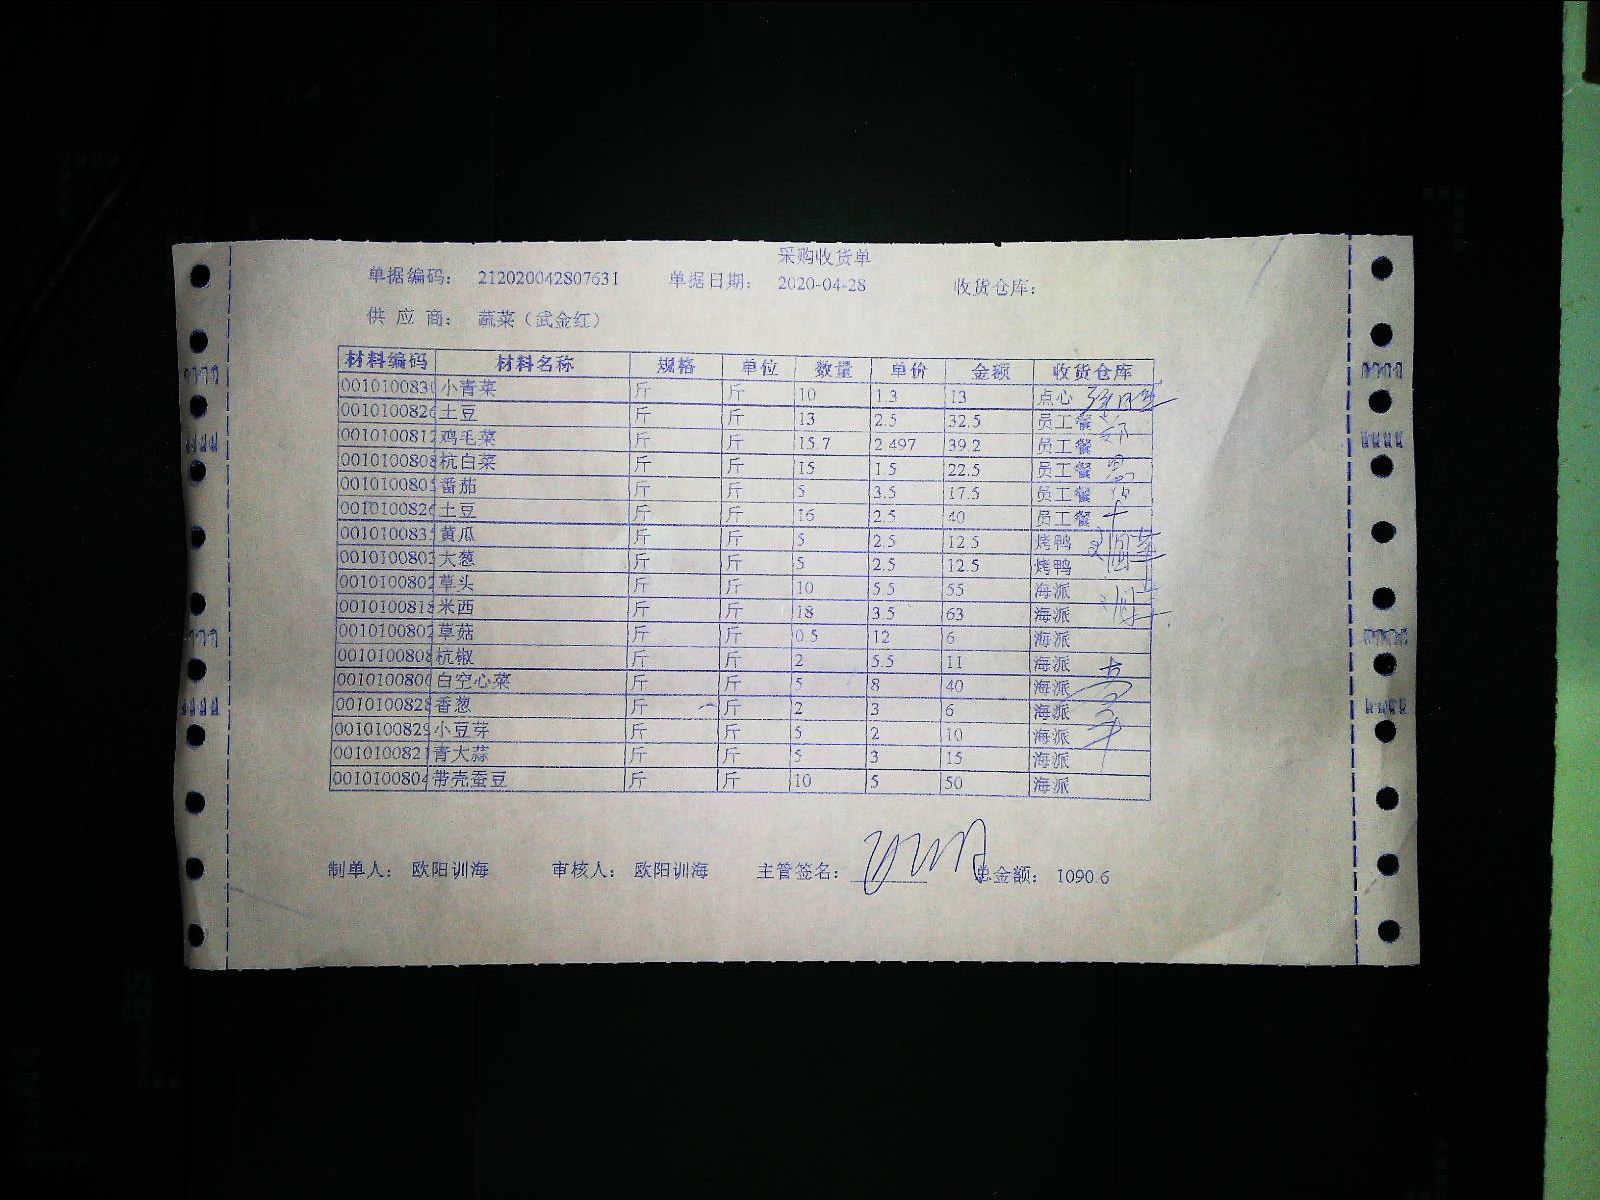 采购收货单
单据编码： 212020042807631 单据日期： 2020-04-28 收货仓库：
供 应 商： 蔬菜（武金红）
材料编码 材料名称 规格 单位 数量 单价 金额 收货仓库
0010100830 小青菜 斤 斤 10 1.3 13 点心
0010100826 土豆 斤 斤 13 2.5 32.5 员工餐
0010100812 鸡毛菜 斤 斤 15.7 2.497 39.2 员工餐
0010100808 杭白菜 斤 斤 15 1.5 22.5 员工餐
001010080 番茄 斤 斤 5 3.5 17.5 员工餐
0010100826 土豆 斤 斤 16 2.5 40 员工餐
001010083 黄瓜 斤 斤 5 2.5 12.5 烤鸭
0010100803 大葱 斤 斤 5 2.5 12.5 烤鸭
0010100802 草头 斤 斤 10 5.5 55 海派
0010100818 米西 斤 斤 18 3.5 63 海派
0010100802 草菇 斤 斤 0.5 12 6 海派
0010100808 杭椒 斤 斤 2 5.5 11 海派
0010100800 白空心菜 斤 斤 5 8 40 海派
0010100828 香葱 斤 斤 2 3 6 海派
0010100829 小豆芽 斤 斤 5 2 10 海派
0010100821 青大蒜 斤 斤 5 3 15 海派
0010100804 带壳蚕豆 斤 斤 10 5 50 海派
制单人： 欧阳训海 审核人： 欧阳训海 主管签名： 总金额： 1090.6